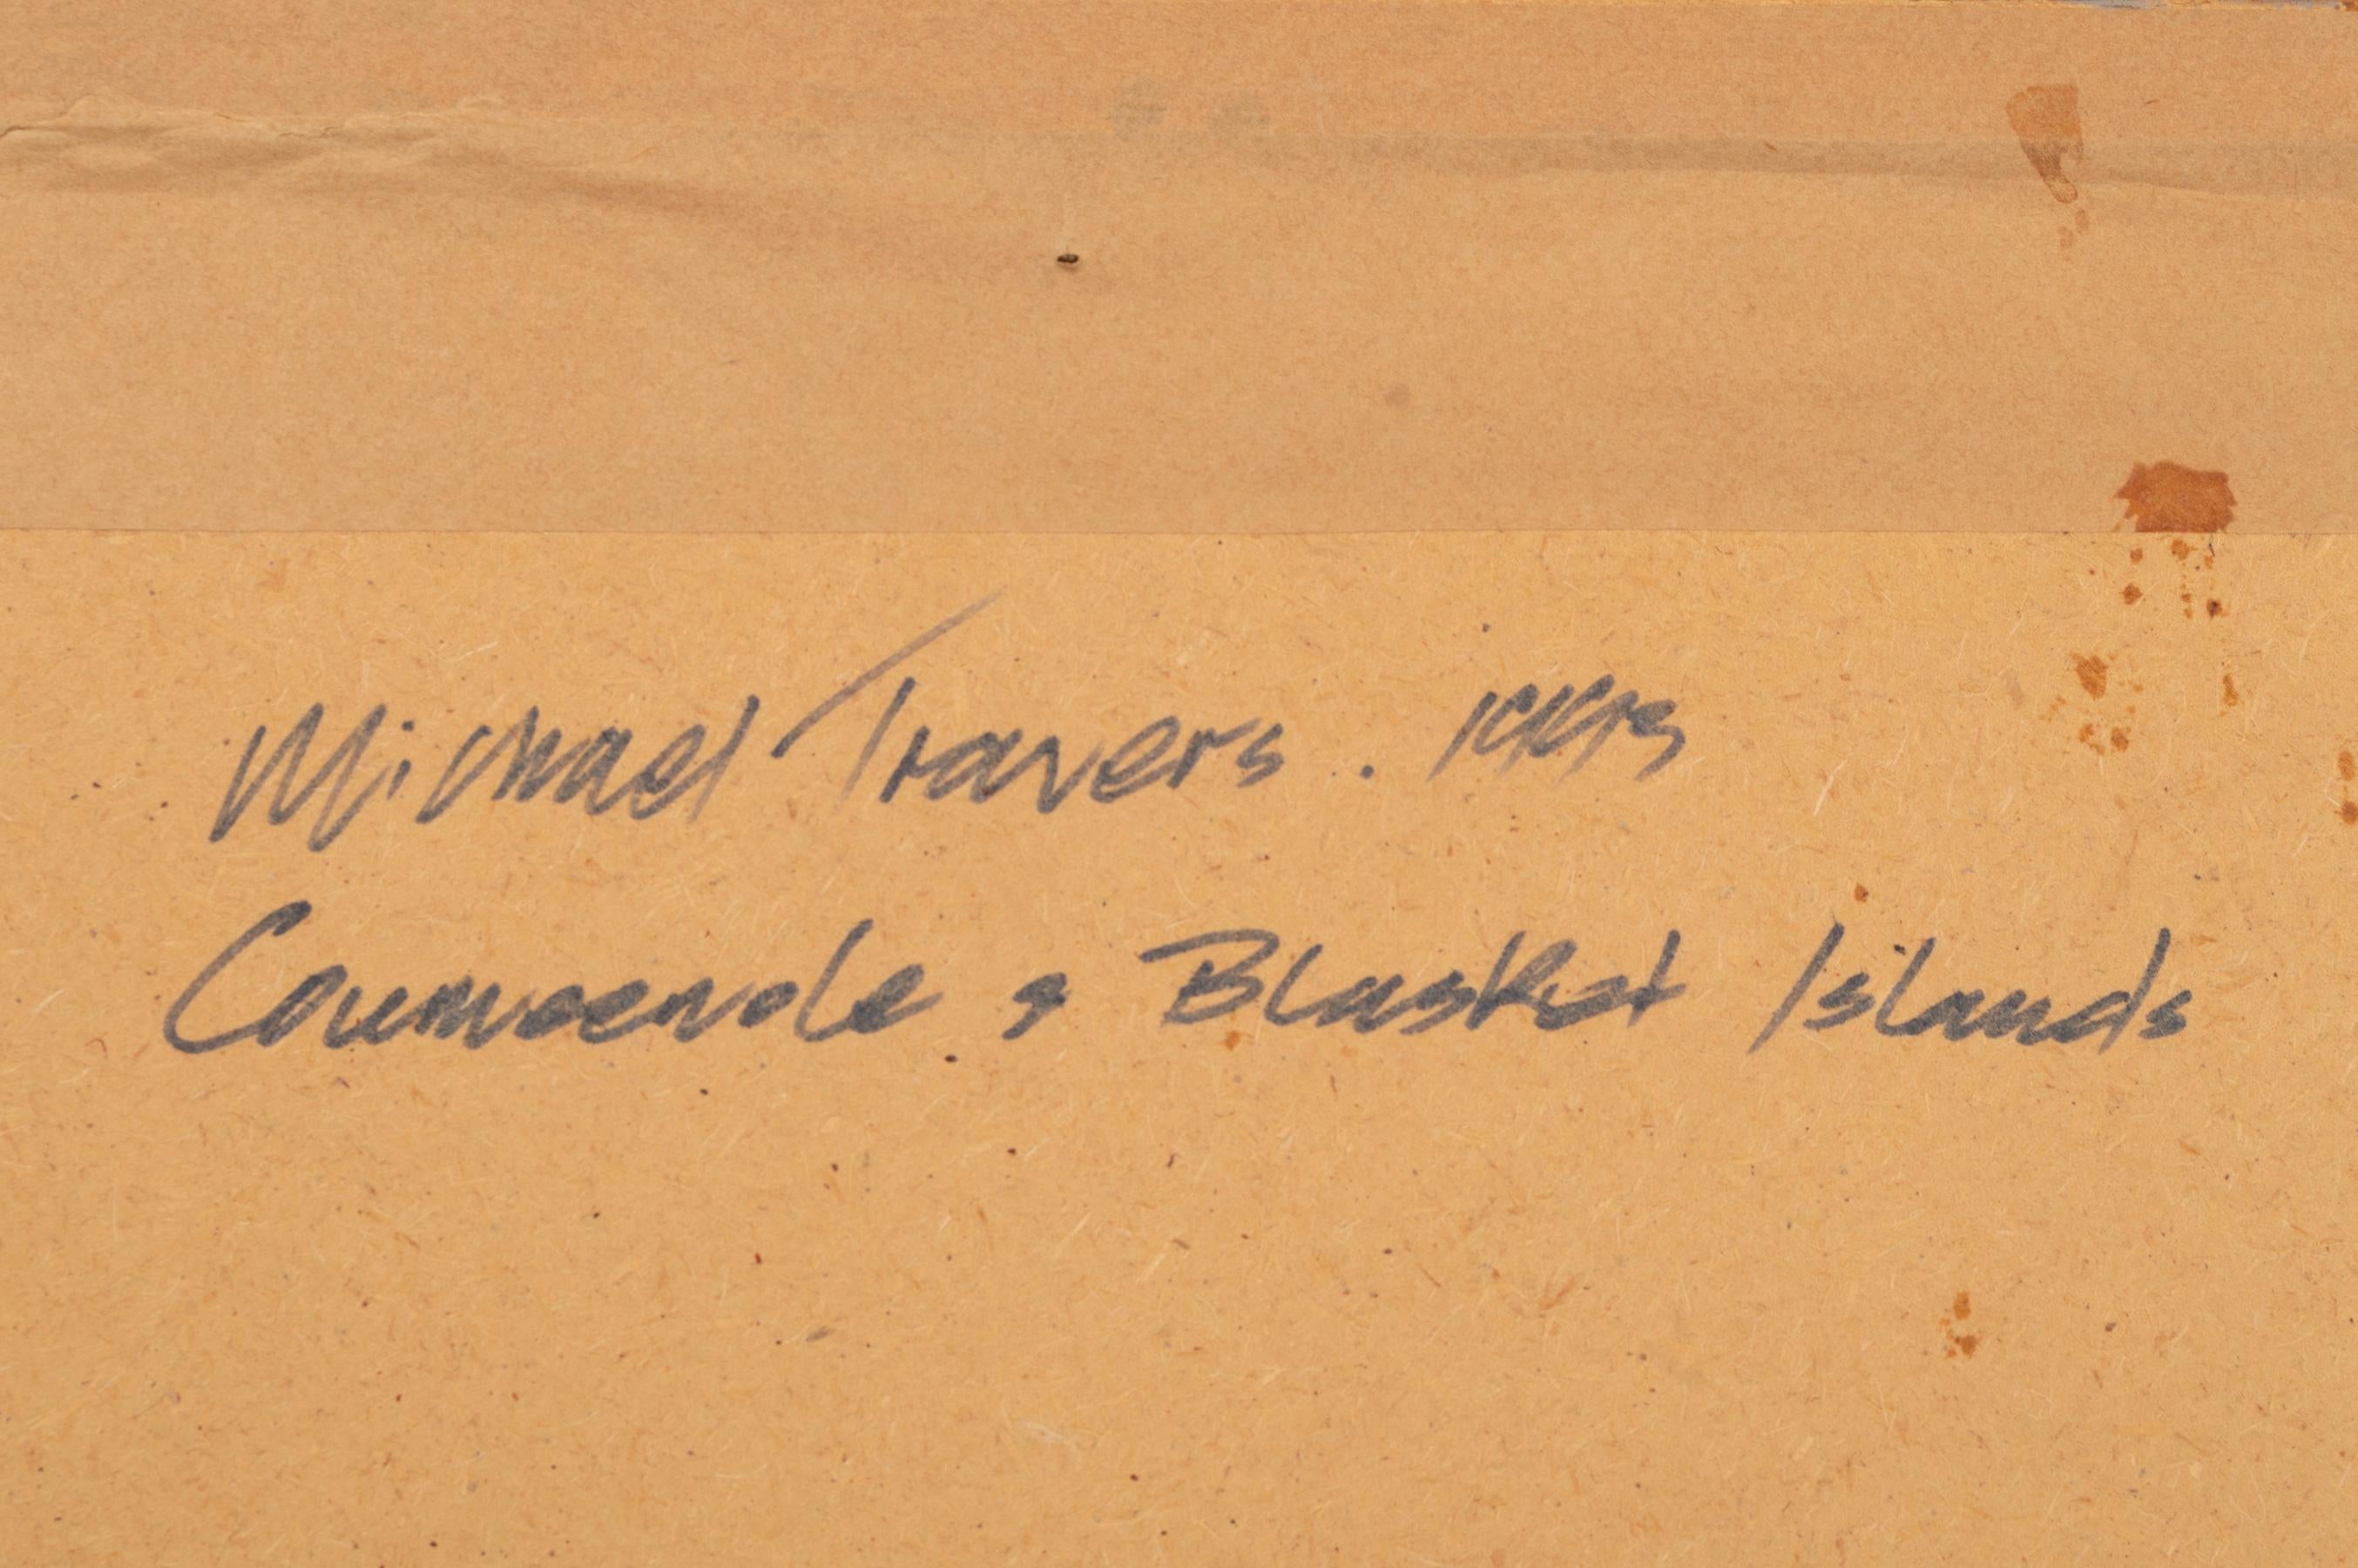 Michael Travers.
Coumeenole & Blasket Islands